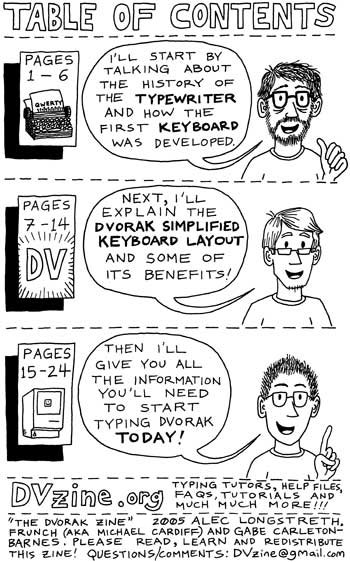 TABLE OF CONTENTS
PAGES
1-6
QWERTY
I'LL START BY
TALKING ABOUT
THE HISTORY OF
THE TYPEWRITER
AND HOW THE
FIRST KEYBOARD
WAS DEVELOPED.
PAGES
7-14
DV
NEXT, I'LL
EXPLAIN THE
DVORAK SIMPLIFIED
KEYBOARD LAYOUT
AND SOME OF
ITS BENEFITS!
PAGES
15-24
THEN I'LL
GIVE YOU ALL
THE INFORMATION
YOU'LL NEED
TO START
TYPING DVORAK
TODAY!
DVzine.org
TYPING TUTORS, HELP FILES,
FAQS, TUTORIALS AND
MUCH MUCH MORE!!!
"THE DVORAK ZINE" 2005 ALEC LONGSTRETH,
FRUNCH (AKA MICHAEL CARDIFF) AND GABE CARLETON-
BARNES. PLEASE READ, LEARN AND REDISTRIBUTE
THIS ZINE! QUESTIONS/COMMENTS: DVzine@gmail.com